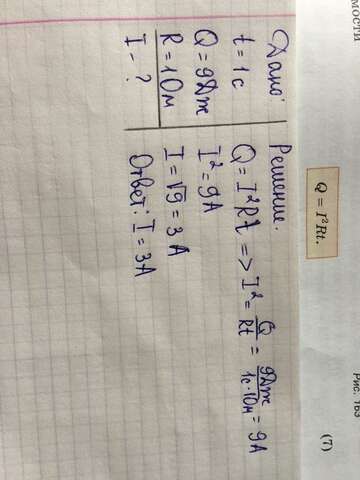 мости
Q = I²Rt.
(7)
Рис. 159
Дано:
t = 1с
Q = 9Дж
R = 1Ом
I - ?
Решение.
Q = I²Rt => I² = Q/Rt = 9Дж/1с·1Ом = 9А
I² = 9А
I = √9 = 3 А
Ответ: I = 3А